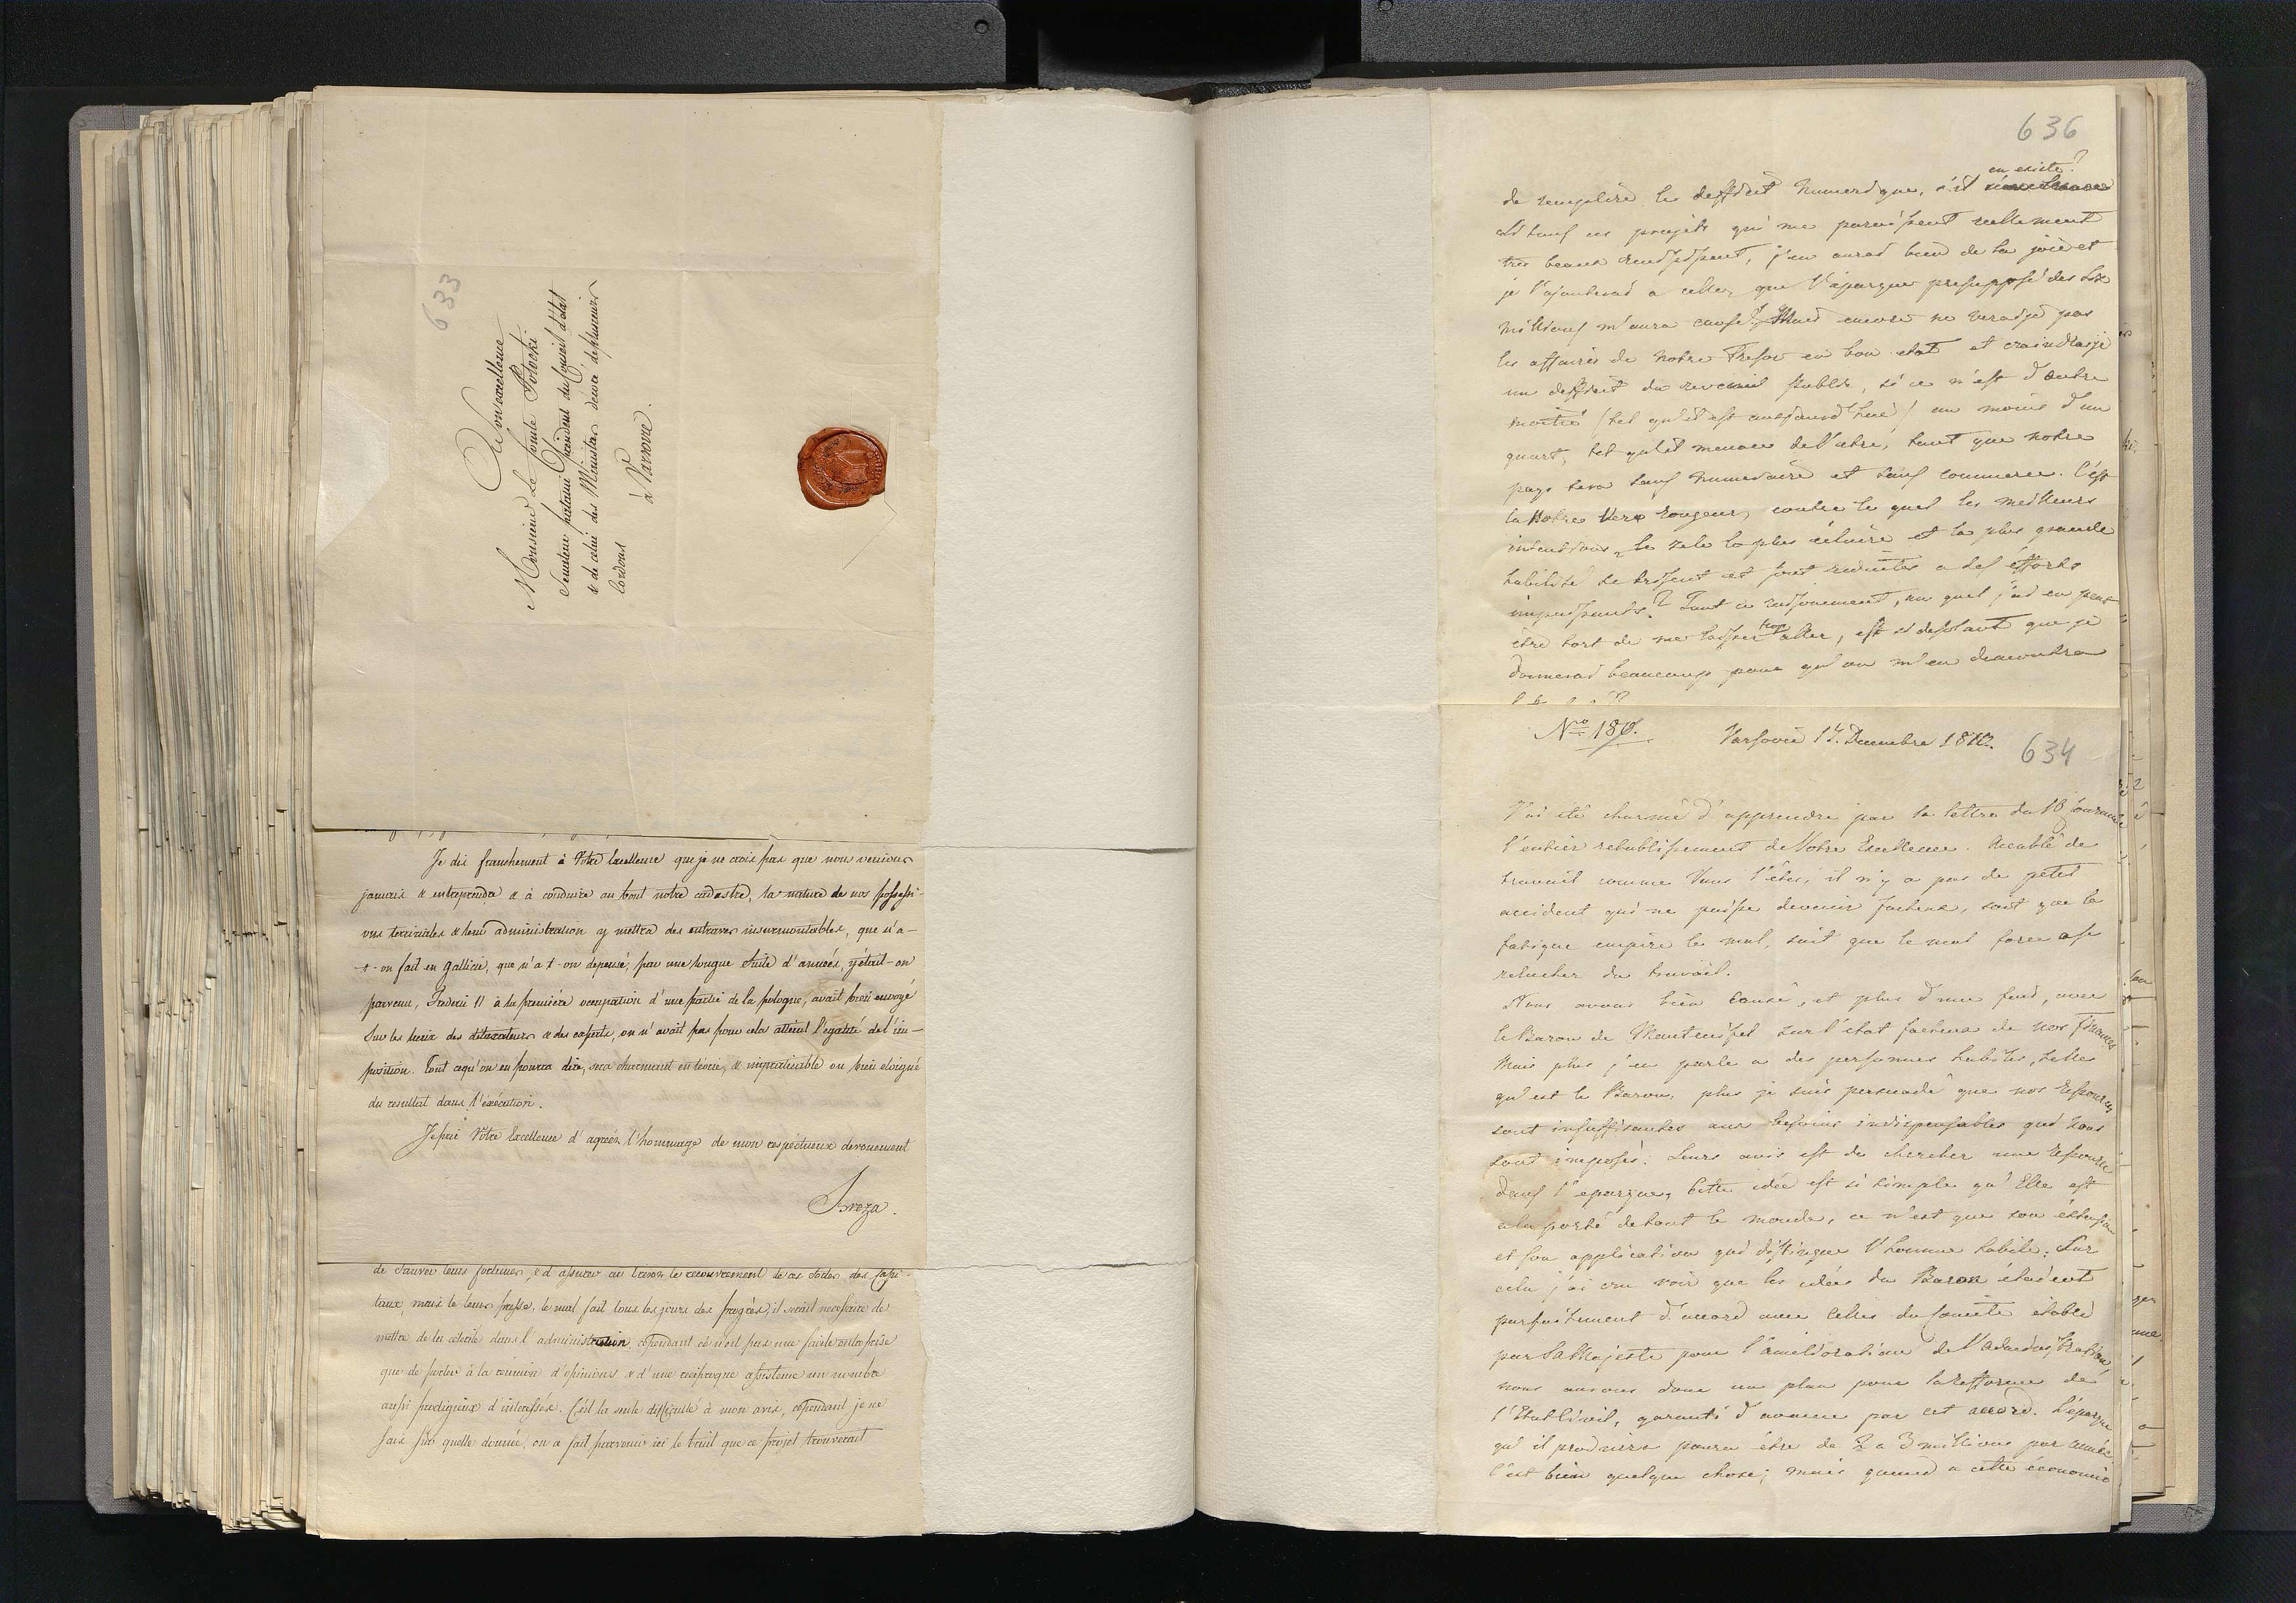 633
A Son excellence
Monsieur le Comte Potocki
Senateur palatin President du Conseil d'état
& de celui des Ministres décoré de plusieurs
Cordons
à Varsovie.
Je dis franchement à Votre Excellence que je ne crois pas que nous venions
jamais à entreprendre & à conduire au bout notre cadastre, la nature de nos possessi-
ons terririales & leur administration y mettra des entraves insurmontables, que n'a-
t-on fait en Gallicie, que n'a t-on depensé, par une longue suite d'années, y était-on
parvenu, Frederic II à la première occupation d'une partie de la pologne, avait bien envoyé
sur les lieux des détaxateurs & des experts, on n'avait pas pour cela atteint l'egalité de l'im-
position. Tout cequ'on en pourra dire, sera charmant en téorie, & impraticable ou bien eloigné
du resultat dans l'éxécution.
Je prie Votre Excellence d'agréer l'hommage de mon respectueux devouement
Breza.
de sauver leurs fortunes, & d'assurer au tresor le recouvrement de ces dodes des Capi-
taux, mais le tems presse, le mal fait tous les jours des progrès, il serait necessaire de
mettre de la celerité dans l'administration, cependant ce n'est pas une facile entreprise
que de porter à la réunion d'opinions & d'une reciproque assistence un nombre
aussi prodigieux d'interessés. C'est la seule difficulté à mon avis, cependant je ne
sais sur quelle donnée, on a fait parvenir ici le bruit que ce projet trouverait
636
en existe?
de remplire le defficit numerique, s'il
Si tous ces projets qui me paroissent reellement
tres beaux reussissent, j'en aurai bien de la joie et
je l'ajouterai a celle, que l'épargne presupposé des six
millions m'aura causé. Mais encore ne verai-je pas
les affaires de notre Tresor en bon etat et craindrai-je
un defficit du revenu public, si ce n'est d'outre
moitié (tel qu'il est aujourd'hui) au moins d'un
quart, tel qu'il menace de l'etre, tant que notre
pays sera sans numeraire et sans commerce. C'est
la Notre Vers rongeur, contre le quel les meilleurs
intentions, le zele le plus éclairé et la plus grande
habilité se brisent et sont reduites a des efforts
impuissants? Tout ce raisonement, au quel j'ai eu peut
trop
être tort de me laisser aller, est si desolant que je
donnerai beaucoup pour qu'on m'en démontra
No 180. Varsovie 14. Decembre 1810.
634
J'ai été charmé d'apprendre par sa lettre du 10 courant
l'entier retablissement de Votre Excellence. Accablé de
travail comme Vous l'étes, il n'y a pas de petit
accident qui ne puisse devenir facheux, soit que la
fatigue empire le mal, soit que le mal force a se
relacher du travail.
Nous avons bien causé, et plus d'une fois, avec
le Baron de Manteuffel sur l'etat facheux de nos finances
Mais plus j'en parle a des personnes habiles, telles
qu'est le Baron, plus je suis persuadé que nos Ressources
sont insuffisantes aux besoins indispensables qui nous
sont imposés. Leurs avis est de chercher une Ressource
dans l'epargne. Cette idée est si simple qu'Elle est
a la porté de tout le monde, ce n'est que son étension
et son application qui distingue l'homme habile. Sur
cela j'ai cru voir que les idées du Baron étaient
parfaitement d'accord avec celles du Comité établi
par Sa Majesté pour l'amélioration de l'Administration,
nous aurons donc un plan pour la refforme de
garanti d'avance par cet accord. L'épargne
qu'il produira poura être de 2 a 3 millions par année
c'est bien quelque chose; mais quand a cette économie